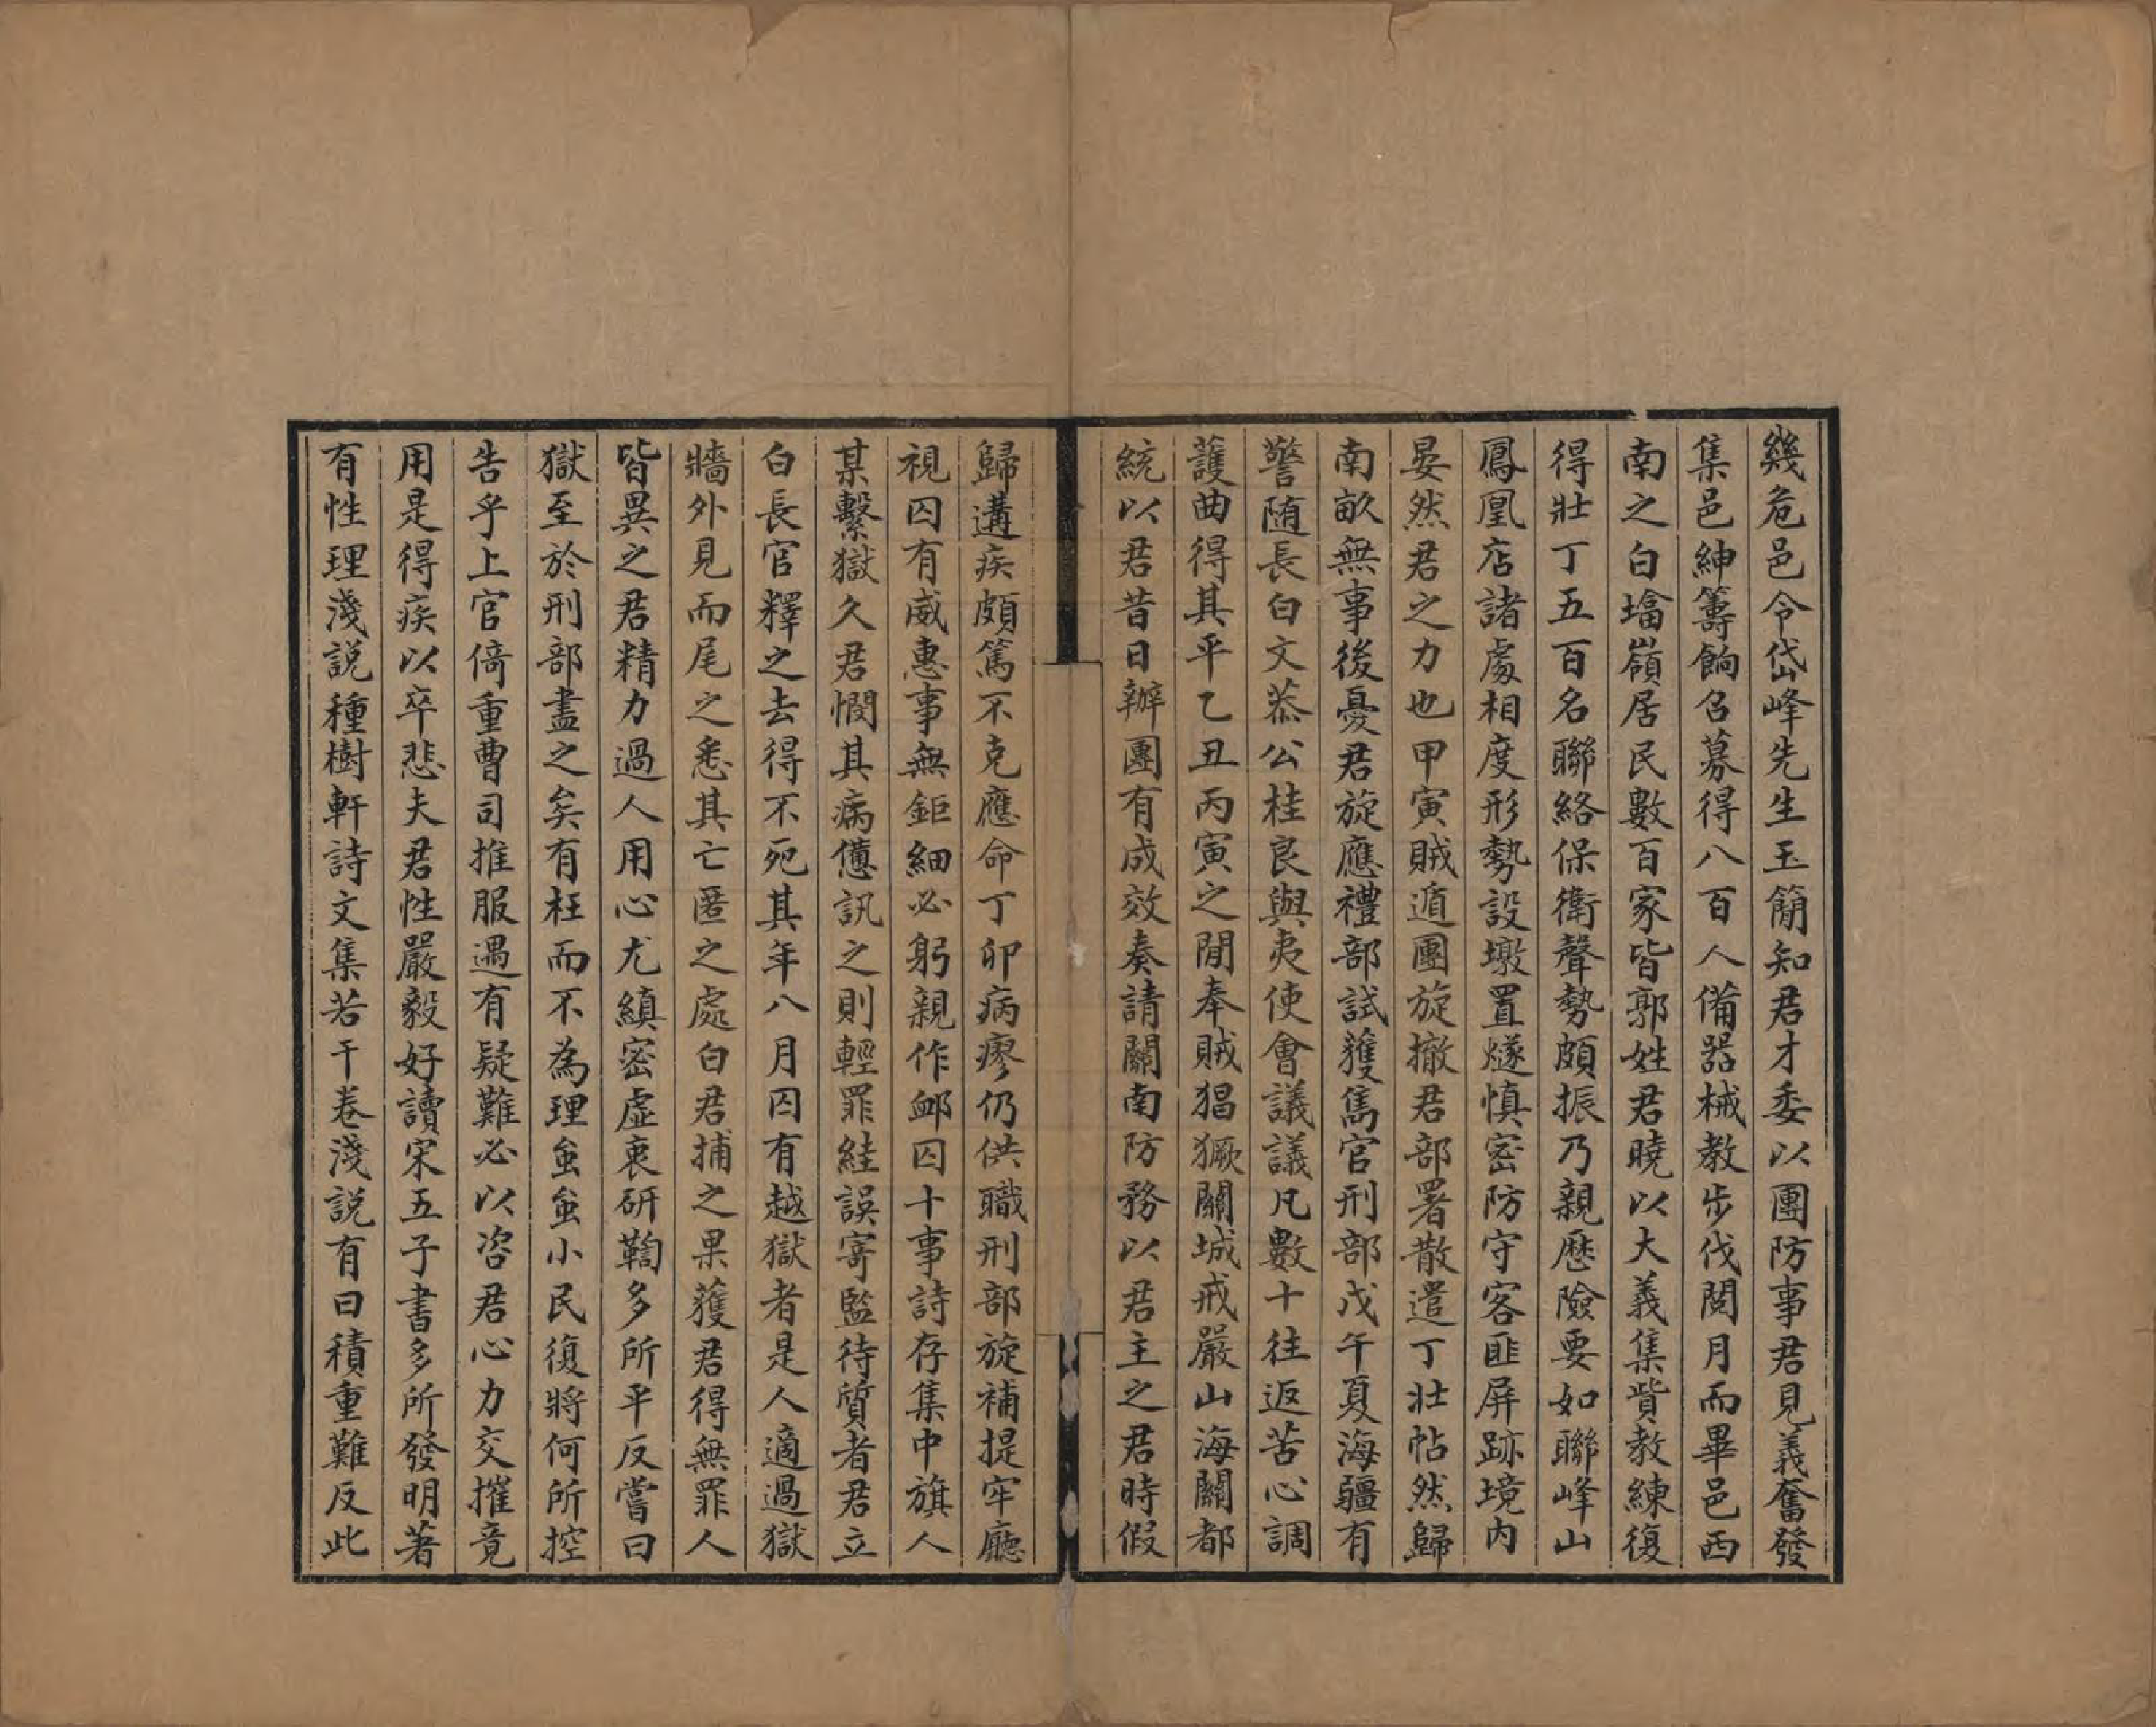 幾危邑令岱峰先生玉簡知君才委以團防事君見義奮發
集邑紳籌餉召募得八百人備器械教步伐閱月而畢邑西
南之白塔嶺居民數百家皆郭姓君曉以大義集貲教練復
得壯丁五百名聯絡保衛聲勢頗振乃親歷險要如聯峰山
鳳凰店諸處相度形勢設墩置燧慎密防守客匪屏跡境內
晏然君之力也甲寅賊遁團旋撤君部署散遣丁壯帖然歸
南畝無事後憂君旋應禮部試獲雋官刑部戊午夏海疆有
警随長白文恭公桂良與夷使會議議凡數十往返苦心調
護曲得其平乙丑丙寅之閒奉賊猖獗關城戒嚴山海關都
統以君昔日辦團有成效奏請關南防務以君主之君時假
歸遘疾頗篤不克應命丁卯病瘳仍供職刑部旋補提牢廳
視囚有威惠事無鉅細必躬親作卹囚十事詩存集中旗人
某繫獄久君憫其病憊訊之則輕罪絓誤寄監待質者君立
白長官釋之去得不死其年八月囚有越獄者是人適過獄
牆外見而尾之悉其亡匿之處白君捕之果獲君得無罪人
皆異之君精力過人用心尤縝密虛衷研鞫多所平反嘗曰
獄至於刑部盡之矣有枉而不為理蚩蚩小民復將何所控
告乎上官倚重曹司推服遇有疑難必以咨君心力交摧竟
用是得疾以卒悲夫君性嚴毅好讀宋五子書多所發明著
有性理淺説種樹軒詩文集若干卷淺説有曰積重難反此